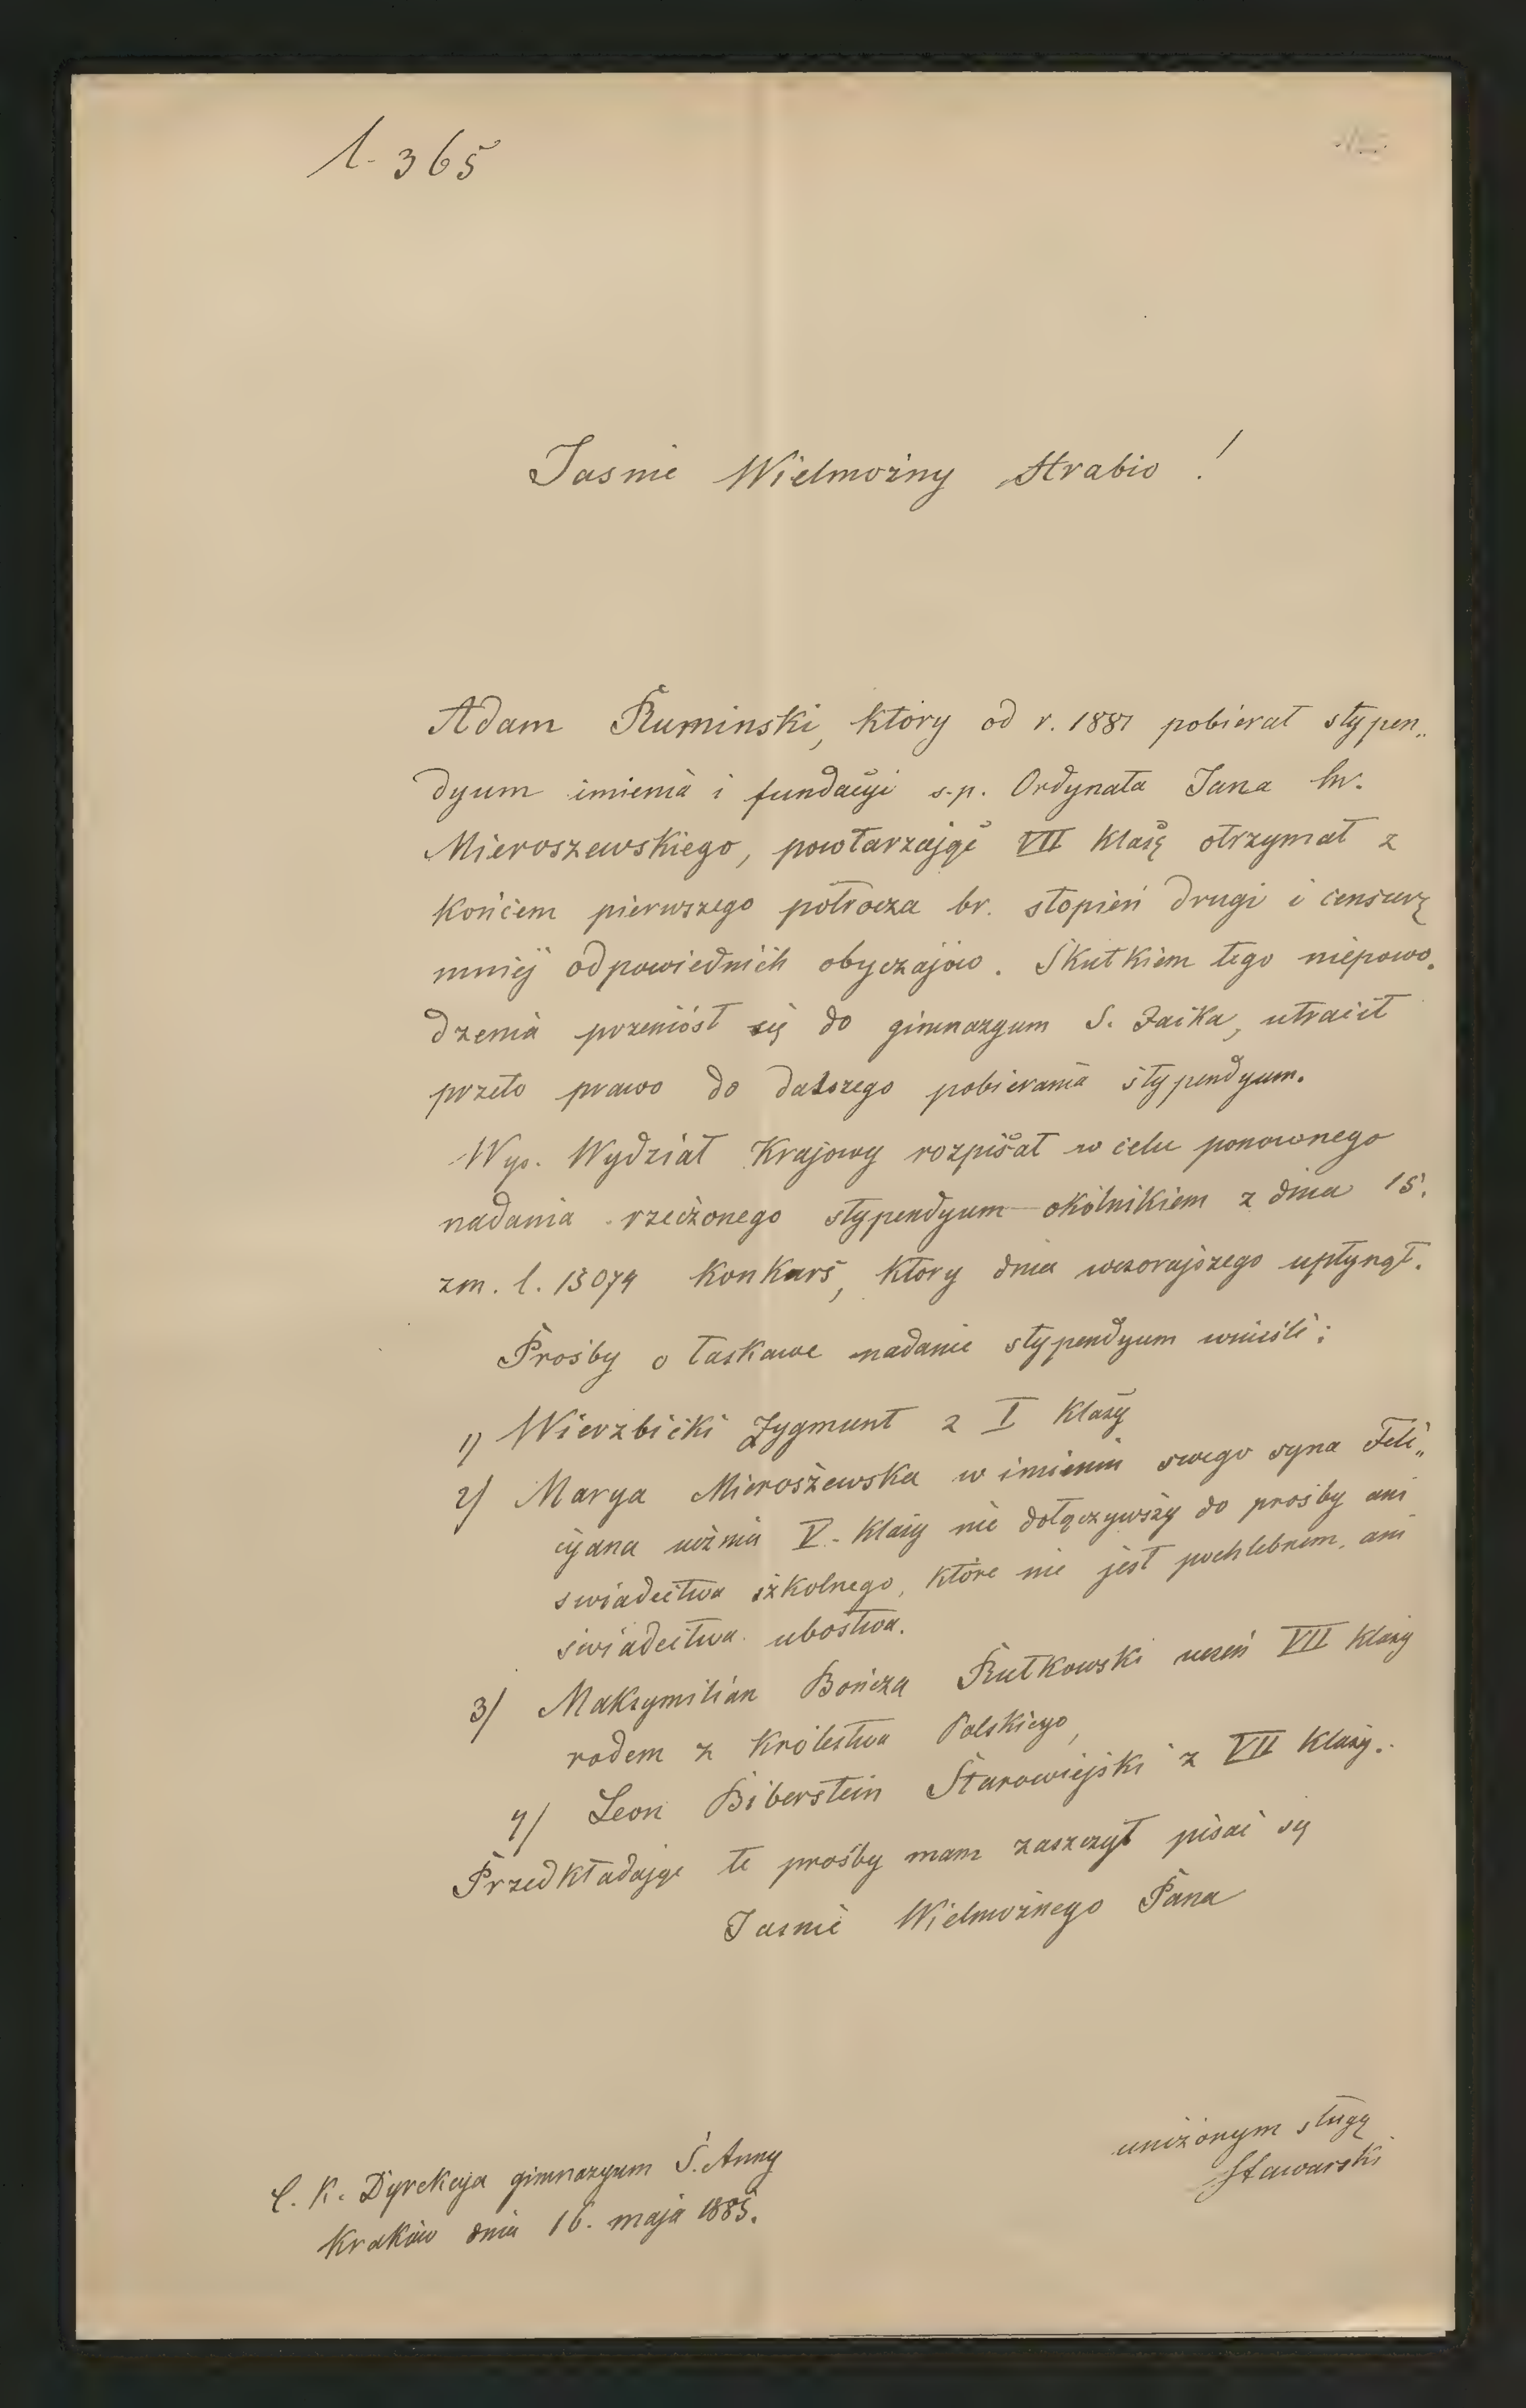 l. 365
Jaśnie Wielmożny Hrabio !
Adam Rumiński, który od r. 1881 pobierał stypen„
dyum imienia i fundacyi ś.p. Ordynata Jana hr.
Mieroszewskiego, powtarzając VII klasę otrzymał z
końcem pierwszego półrocza br. stopień drugi i censurę
mniej odpowiednich obyczajów. Skutkiem tego niepowo„
dzenia przeniósł się do gimnazyum Ś. Jacka, utracił
przeto prawo do dalszego pobierania stypendyum.
Wys. Wydział Krajowy rozpisał w celu ponownego
nadania rzeczonego stypendyum okólnikiem z dnia 15.
zm. l. 13074 konkurs, który dnia wczorajszego upłynął.
Prośby o łaskawe nadanie stypendyum wnieśli:
1) Wierzbicki Zygmunt z I klasy
2) Marya Mieroszewska w imieniu swego syna Feli„
cyana ucznia V. klasy nie dołączywszy do prośby ani
świadectwa szkolnego, które nie jest pochlebnem, ani
świadectwa ubóstwa.
3) Maksymilian Bończa Rutkowski uczeń VII klasy
rodem z Królestwa Polskiego,
4) Leon Biberstein Starowiejski z VII klasy.
Przedkładając te prośby mam zaszczyt pisać się
Jaśnie Wielmożnego Pana
uniżonym sługą
Stawarski
C. K. Dyrekcya gimnazyum Ś. Anny
Kraków dnia 16. maja 1885.